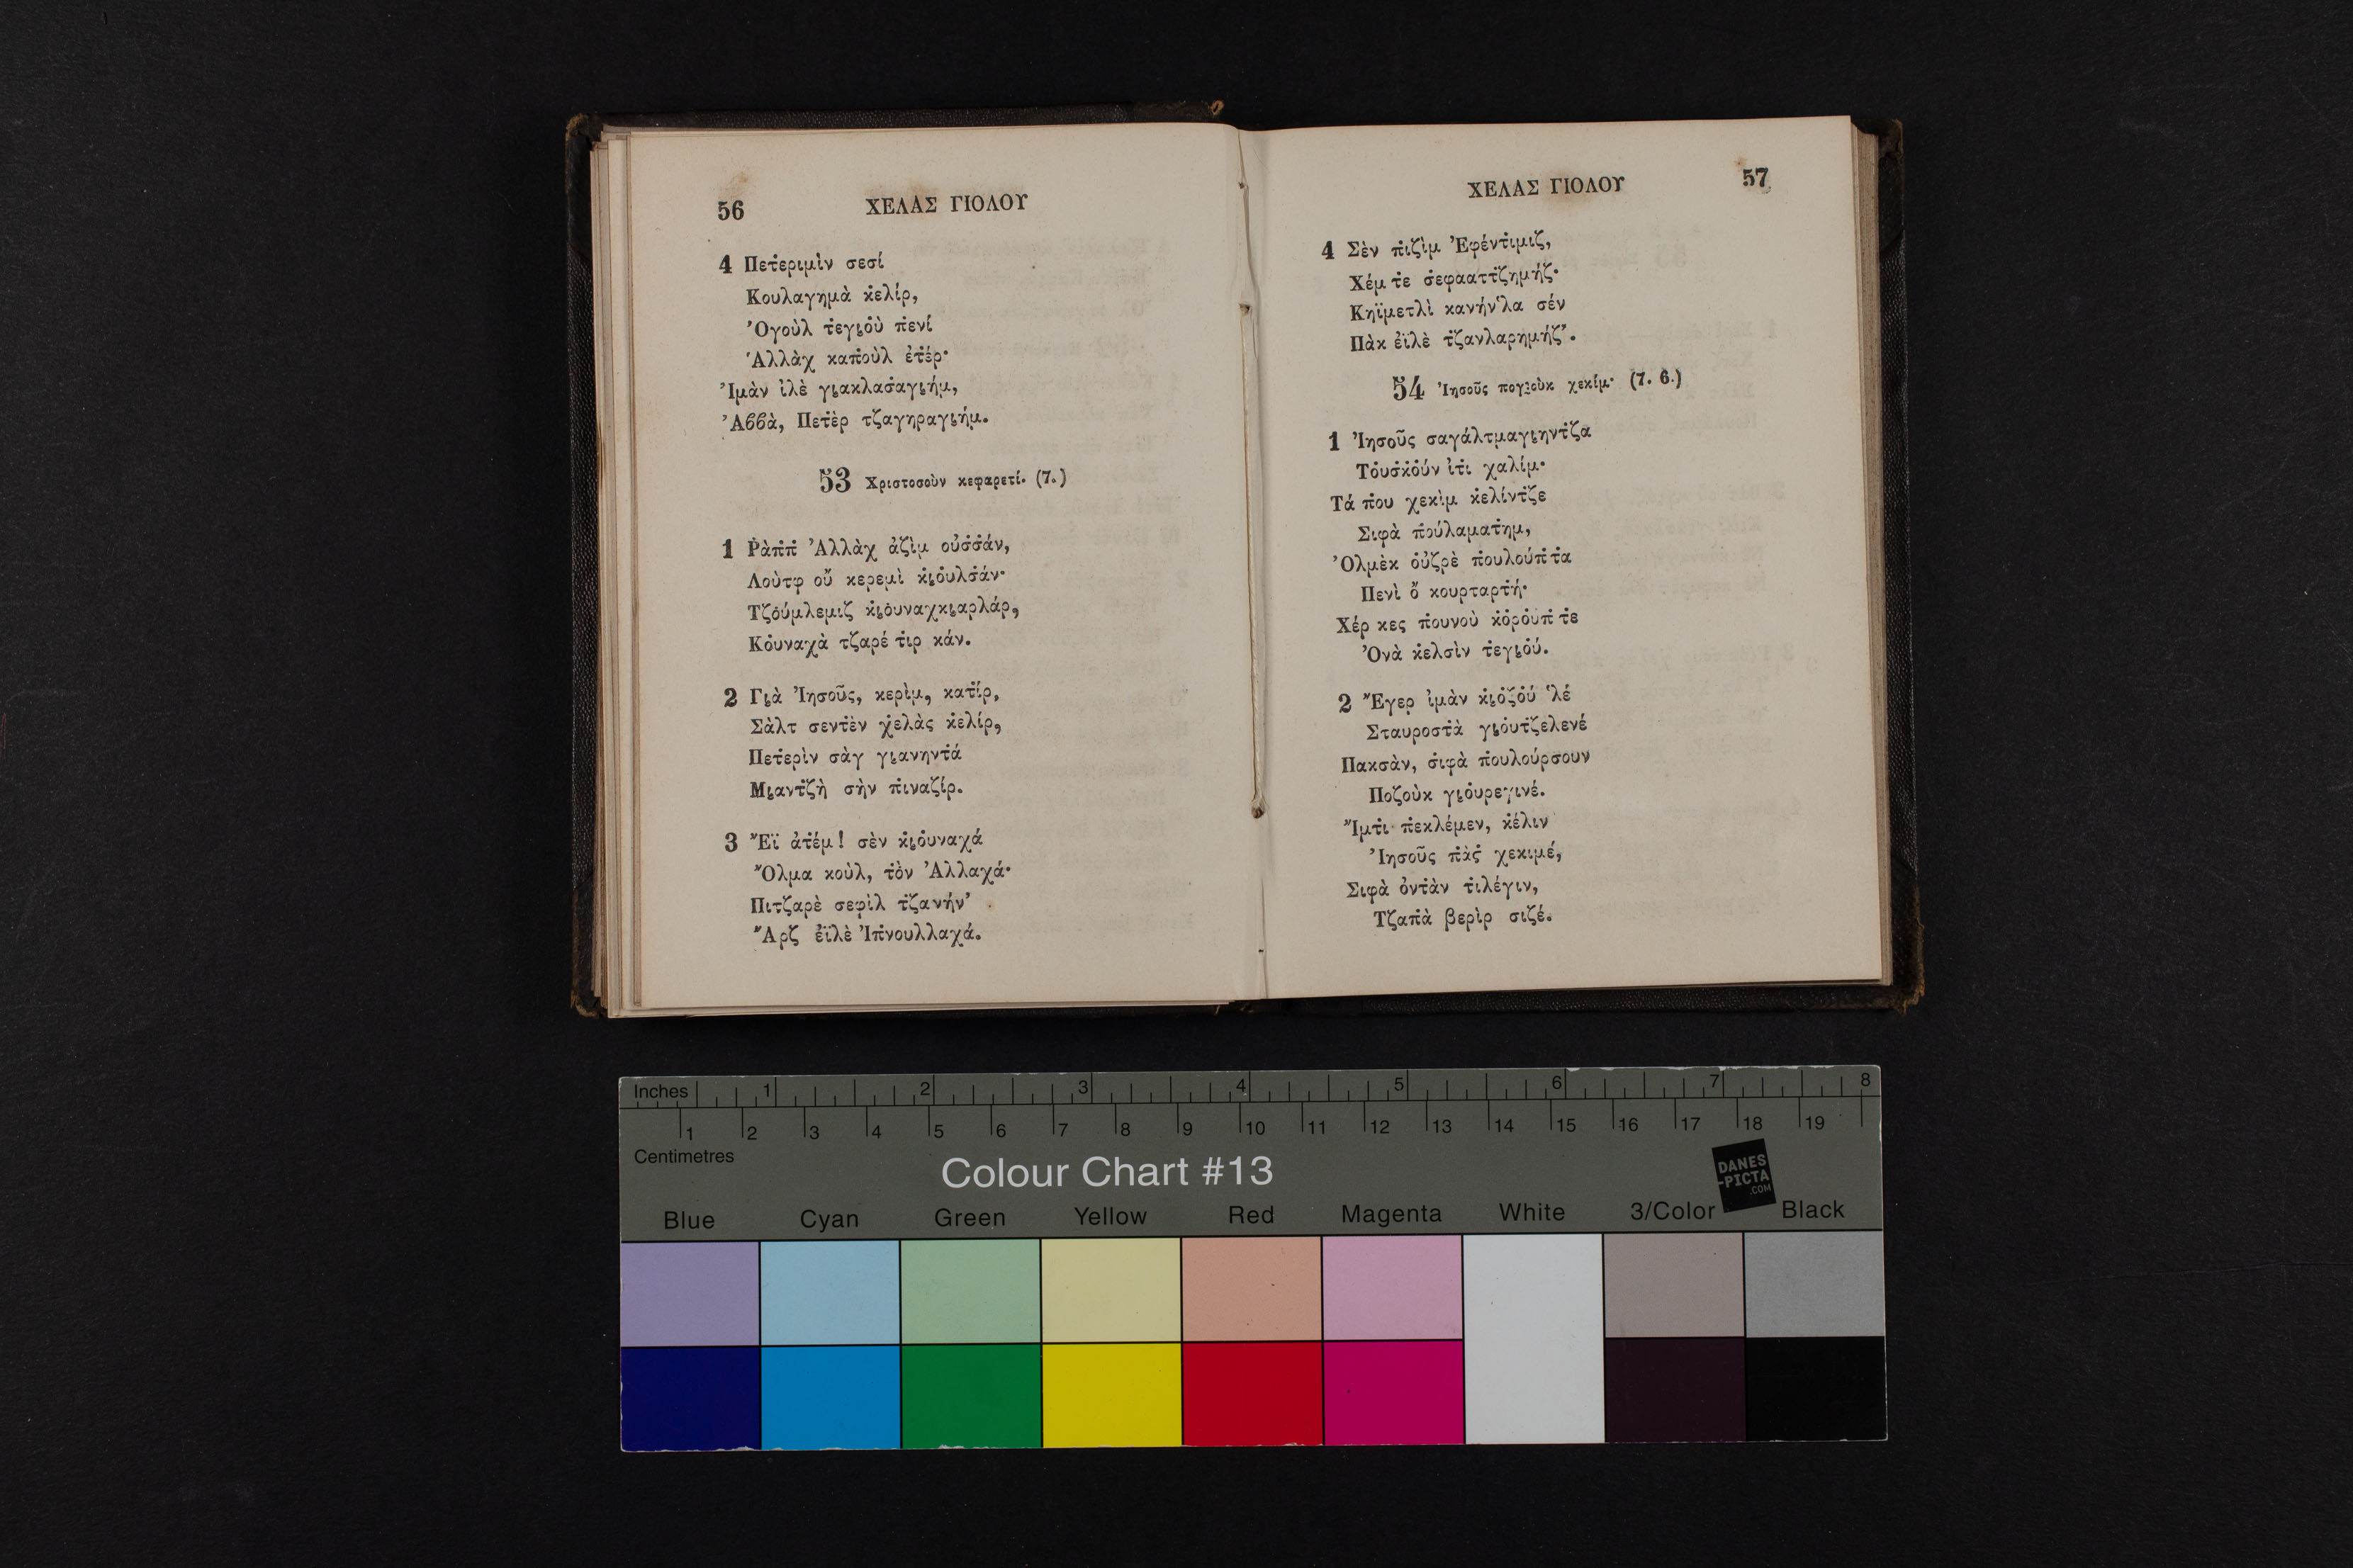 56 ΧΕΛΑΣ ΓΙΟΛΟΥ
4 Πετ̇εριμὶν σεσί
Κουλαγημὰ κ̇ελίρ,
Ὀγοὺλ τ̇εγι̱ο̇ὺ π̇ενί
Ἀλλὰχ καπ̇οὺλ ἐτ̇έρ·
Ἰμὰν ἰλὲ γι̱ακλασ̇αγι̱ήμ,
Ἀϐϐὰ, Πετ̇ὲρ τζαγηραγι̱ήμ.
53 Χριστοσοὺν κεφαρετί· (7.)
1 Ῥὰπ̇π̇ Ἀλλὰχ ἀζὶμ οὐσ̇σ̇άν,
Λοὺτφ οὔ κερεμὶ κ̇ι̱ο̇υλσ̇άν·
Τζο̇ύμλεμιζ κ̇ι̱ο̇υναχκι̱αρλάρ,
Κο̇υναχὰ τζαρέ τ̇ιρ κάν.
2 Γι̱ὰ Ἰησοῦς, κερὶμ, κατ̇ίρ,
Σὰλτ σεντ̇ὲν χ̇ελὰς κ̇ελίρ,
Πετ̇ερὶν σὰγ γι̱ανηντ̇ά
Μι̱αντ̇ζὴ σὴν π̇ιναζίρ.
3 Ἔϊ ἀτ̇έμ! σὲν κ̇ι̱ο̇υναχά
Ὄλμα κοὺλ, τ̇ὸν Ἀλλαχά·
Πιτζαρὲ σεφὶλ τ̇ζανήν᾽
Ἄρζ ἐϊλὲ Ἰπ̇νουλλαχά.
ΧΕΛΑΣ ΓΙΟΛΟΥ 57
4 Σὲν π̇ιζὶμ Ἐφέντ̇ιμιζ,
Χέμ τ̇ε σ̇εφαατ̇τ̇ζημήζ·
Κηϊμετλὶ κανήν᾽λα σέν
Πὰκ ἐϊλὲ τ̇ζανλαρημήζ᾽.
54 Ἰησοῦς πογι̱οὺκ χεκίμ· (7. 6.)
1 Ἰησοῦς σαγάλτμαγι̱ηντ̇ζα
Το̇υσ̇κ̇ο̇ύν ἰτ̇ι χαλίμ·
Τά π̇ου χεκὶμ κ̇ελίντ̇ζε
Σιφὰ π̇ούλαματ̇ημ,
Ὀλμὲκ ο̇ὐζρὲ π̇ουλούπ̇ τ̇α
Πενὶ ὄ κουρταρτ̇ή·
Χέρ κες π̇ουνοὺ κ̇ο̇ρο̇υπ̇ τ̇ε
Ὀνὰ κ̇ελσὶν τ̇εγι̱ο̇ύ.
2 Ἔγερ ἰμὰν κ̇ι̱ο̇ζο̇ύ ᾽λέ
Σταυροστ̇ὰ γι̱ο̇υτ̇ζελενέ
Πακσὰν, σ̇ιφὰ π̇ουλούρσουν
Ποζοὺκ γι̱ο̇υρεγινέ.
Ἴμτ̇ι π̇εκλέμεν, κ̇έλιν
Ἰησοῦς π̇ὰς̇ χεκιμέ,
Σιφὰ ὀντ̇ὰν τ̇ιλέγιν,
Τζαπ̇ὰ βερὶρ σιζέ.
Inches 1 2 3 4 5 6 7 8
1 2 3 4 5 6 7 8 9 10 11 12 13 14 15 16 17 18 19
Centimetres
Colour Chart #13
DANES
-PICTA
.COM
Blue Cyan Green Yellow Red Magenta White 3/Color Black